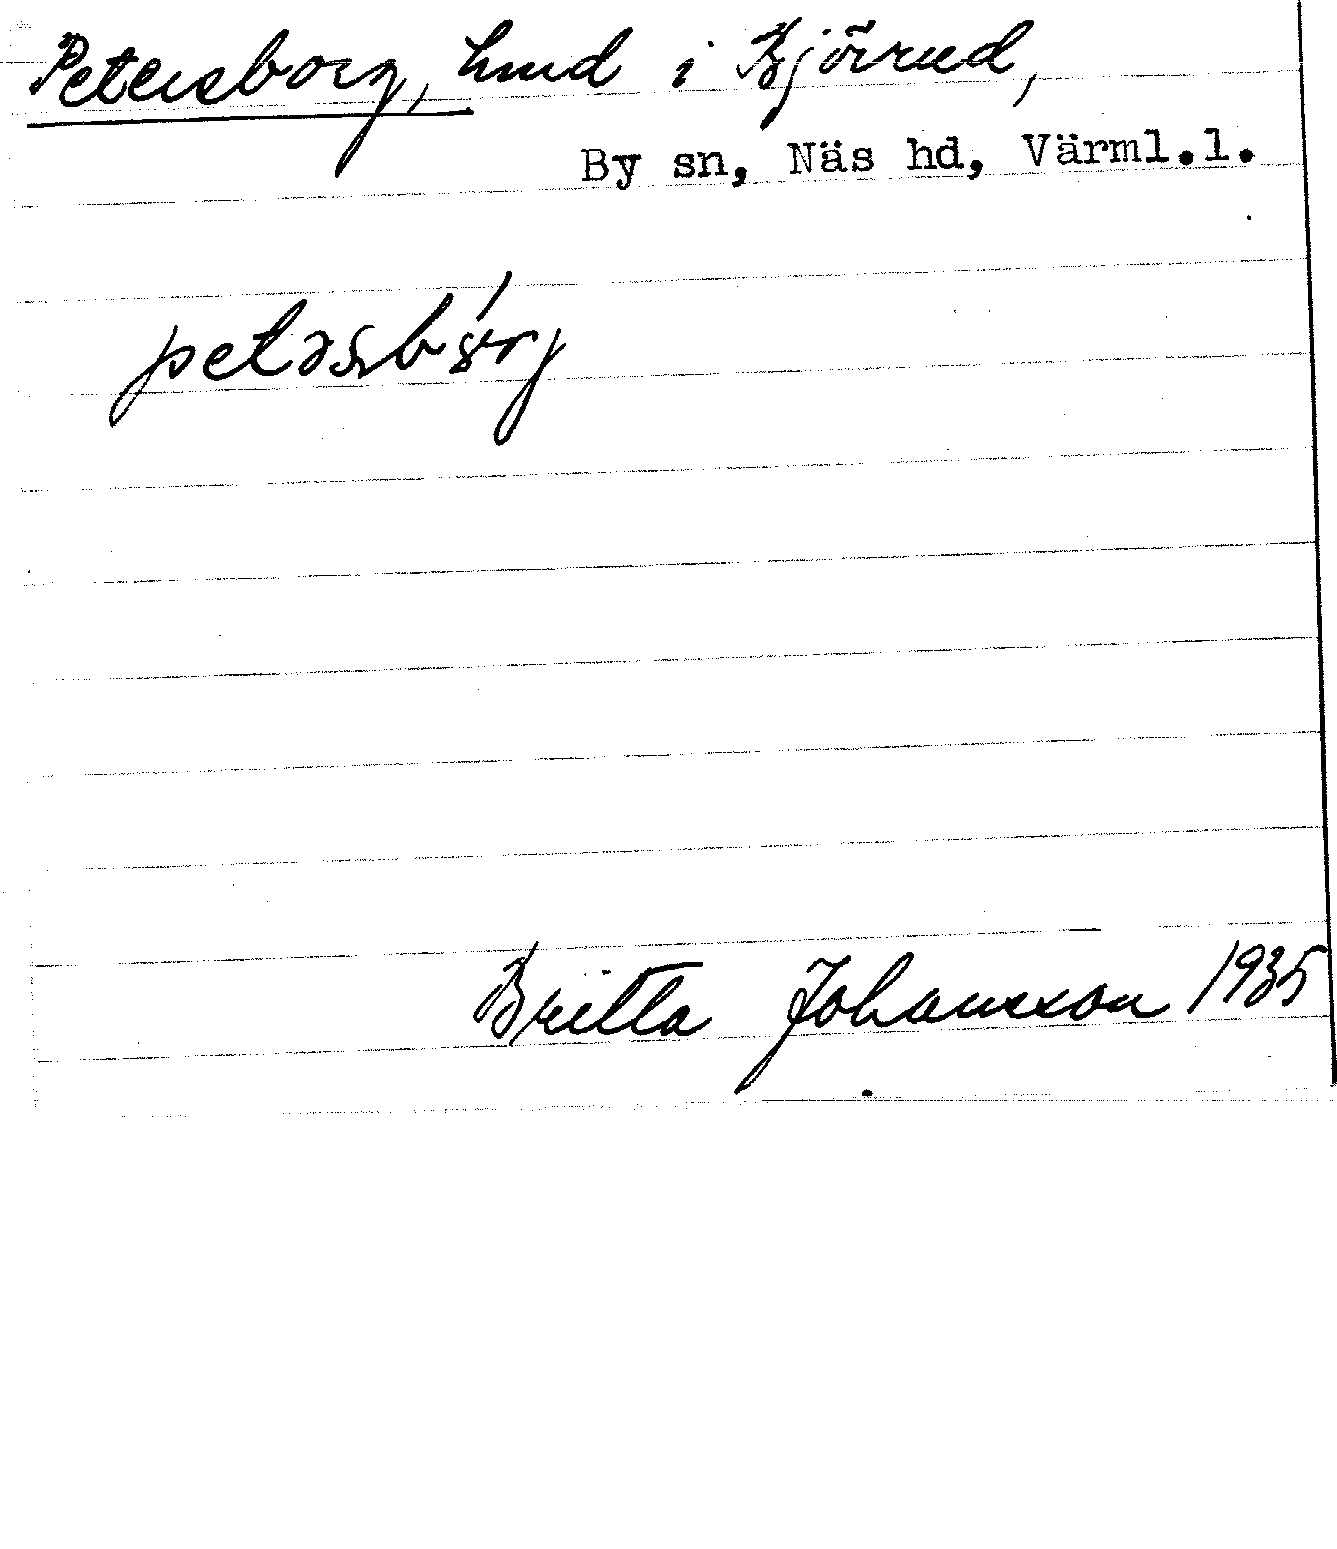 Petersborg, hmd i Bjõrud,
By sn, Näs hd, Värml.l.
Britta Johansson 1935